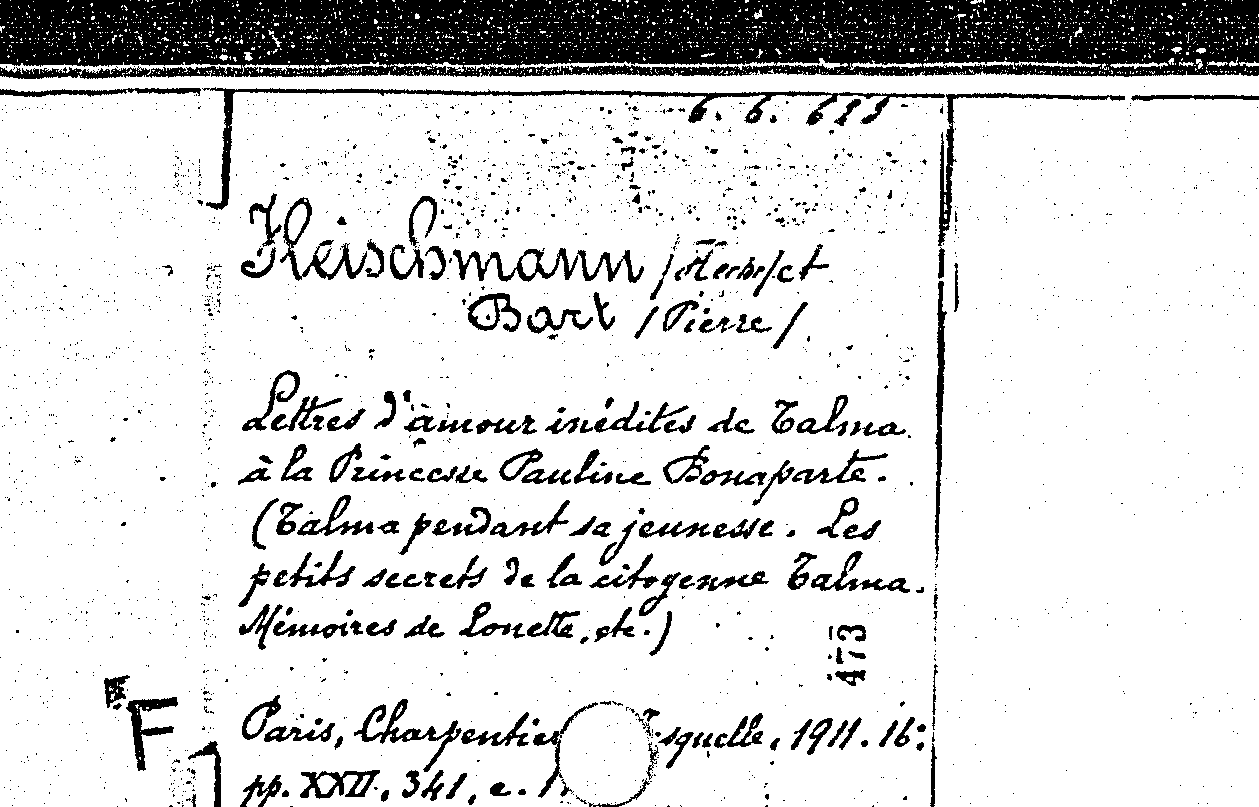 6. 6. 6
Fleischmann /Hector/ et
Bart /Pierre/
Lettres d'amour inédites de Talma
à la Princesse Pauline Bonaparte.
(Talma pendant sa jeunesse. Les
petits secrets de la citoyenne Talma.
Mémoires de Lonette, etc.)
473
F
Paris, Charpentier squelle, 1911. 16:
pp. XXII, 341, c. 1